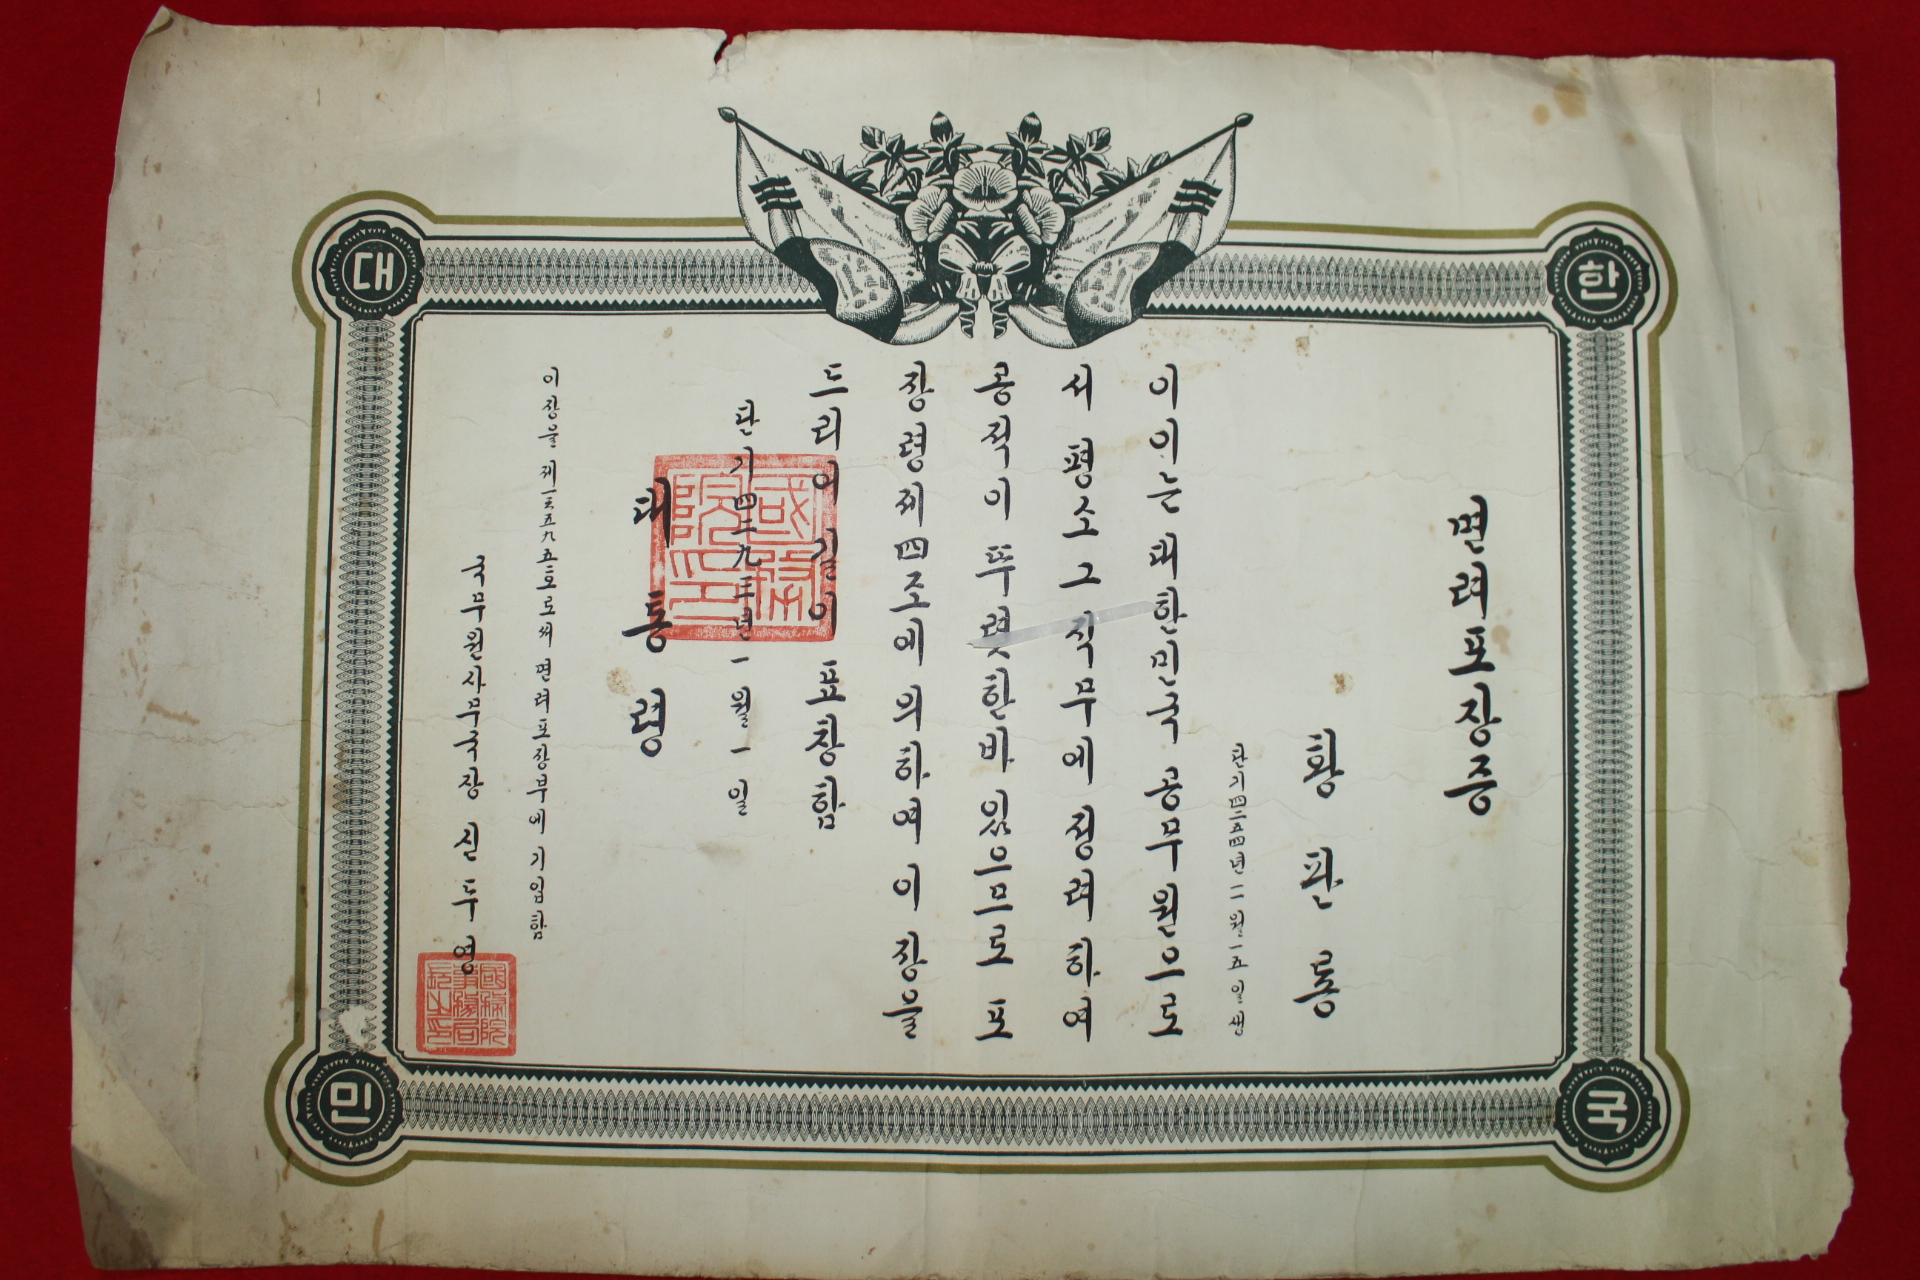 대한민국
면려포장증
황판룡
단기四二五四년一一월一五일생
이이는 대한민국 공무원으로
서 평소 그 직무에 정려하여
공적이 뚜렷한바 있으므로 포
장령제四조에 의하여 이 장을
드리어 길이 표창함
단기四二九三년一월一일
대통령
國務院印
국무원사무국장 신두영
國務院事務局長之印